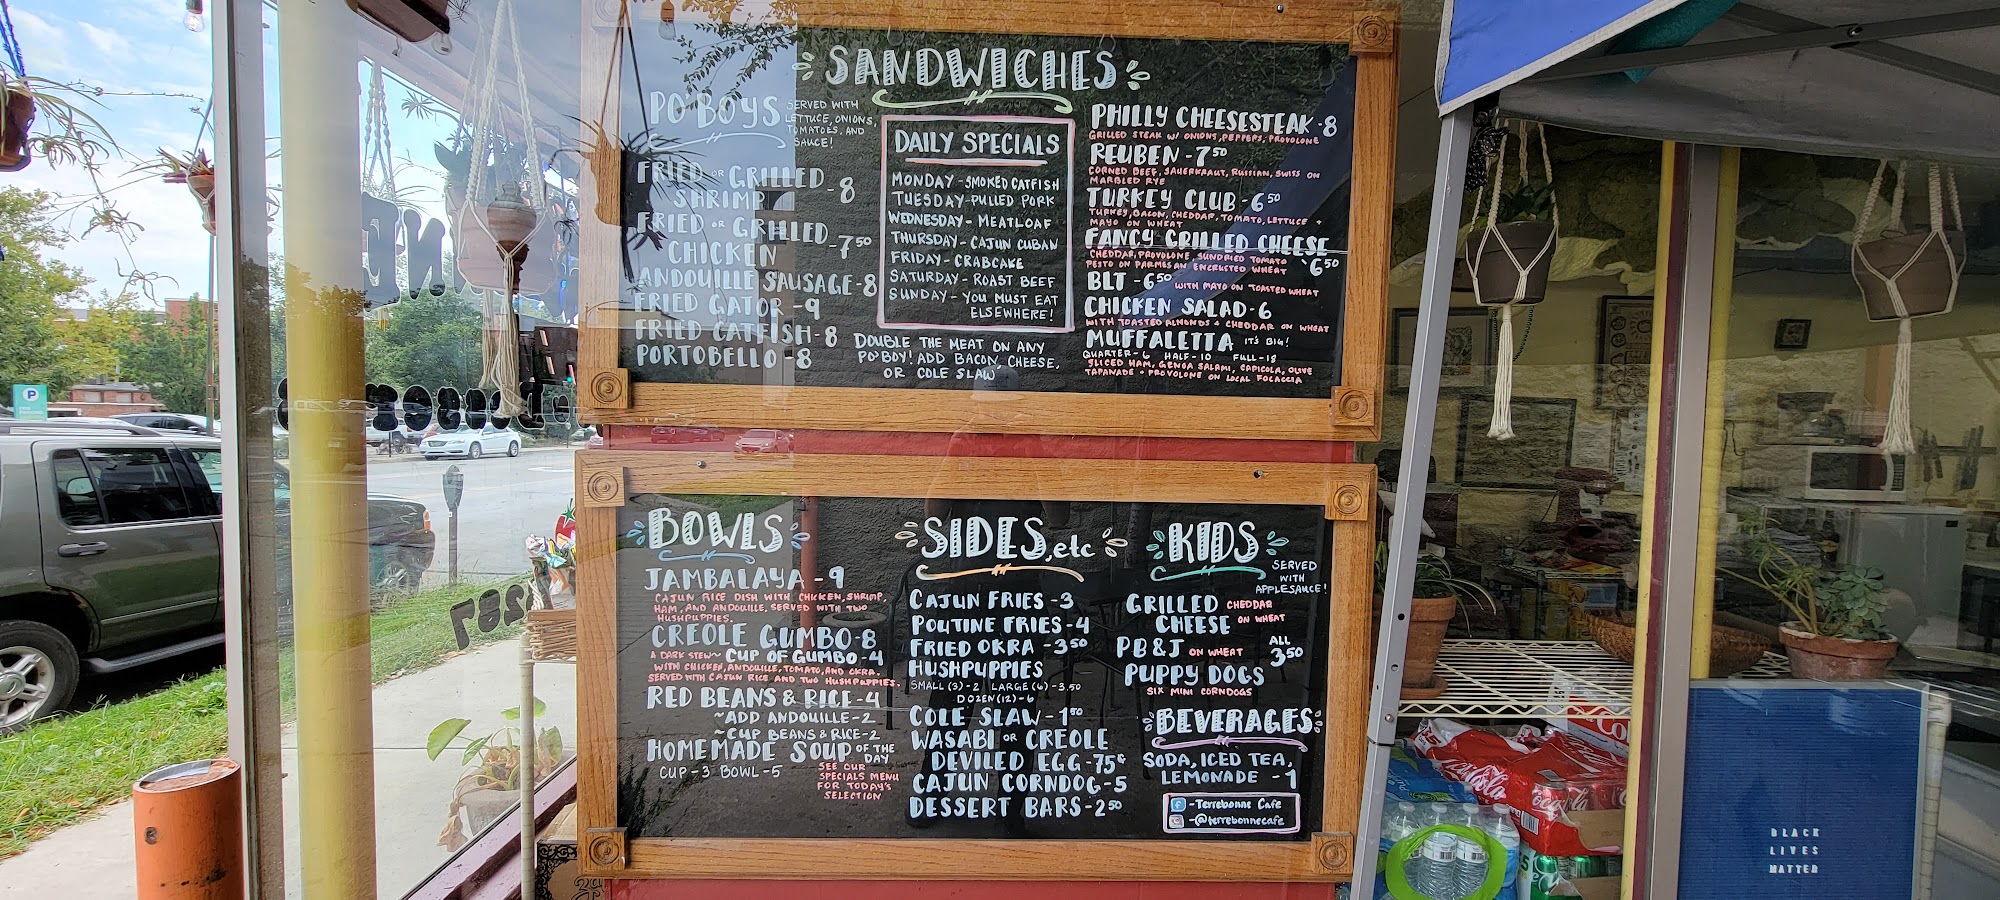 SANDWICHES
PO'BOYS
SERVED WITH
LETTUCE, ONIONS,
TOMATOES, AND
SAUCE!
FRIED OR GRILLED
SHRIMP - 8
FRIED OR GRILLED
CHICKEN - 7 50
ANDOUILLE SAUSAGE - 8
FRIED GATOR - 9
FRIED CATFISH - 8
PORTOBELLO - 8
DAILY SPECIALS
MONDAY - SMOKED CATFISH
TUESDAY - PULLED PORK
WEDNESDAY - MEATLOAF
THURSDAY - CAJUN CUBAN
FRIDAY - CRABCAKE
SATURDAY - ROAST BEEF
SUNDAY - YOU MUST EAT
ELSEWHERE!
DOUBLE THE MEAT ON ANY
PO'BOY! ADD BACON, CHEESE,
OR COLE SLAW
PHILLY CHEESESTEAK - 8
GRILLED STEAK W/ ONIONS, PEPPERS, PROVOLONE
REUBEN - 7 50
CORNED BEEF, SAUERKRAUT, RUSSIAN, SWISS ON
MARBLED RYE
TURKEY CLUB - 6 50
TURKEY, BACON, CHEDDAR, TOMATO, LETTUCE +
MAYO ON WHEAT
FANCY GRILLED CHEESE
CHEDDAR, PROVOLONE, SUNDRIED TOMATO
PESTO ON PARMESAN ENCRUSTED WHEAT - 6 50
BLT - 6 50 WITH MAYO ON TOASTED WHEAT
CHICKEN SALAD - 6
WITH TOASTED ALMONDS + CHEDDAR ON WHEAT
MUFFALETTA IT'S BIG!
QUARTER - 6 HALF - 10 FULL - 18
SLICED HAM, GENOA SALAMI, CAPICOLA, OLIVE
TAPANADE + PROVOLONE ON LOCAL FOCACCIA
BOWLS
JAMBALAYA - 9
CAJUN RICE DISH WITH CHICKEN, SHRIMP,
HAM, AND ANDOUILLE. SERVED WITH TWO
HUSHPUPPIES.
CREOLE GUMBO - 8
A DARK STEW ~ CUP OF GUMBO - 4
WITH CHICKEN, ANDOUILLE, TOMATO, AND OKRA.
SERVED WITH CAJUN RICE AND TWO HUSHPUPPIES.
RED BEANS & RICE - 4
~ADD ANDOUILLE - 2
~CUP BEANS & RICE - 2
HOMEMADE SOUP OF THE DAY
CUP - 3 BOWL - 5
SEE OUR
SPECIALS MENU
FOR TODAY'S
SELECTION
SIDES, etc
CAJUN FRIES - 3
POUTINE FRIES - 4
FRIED OKRA - 3 50
HUSHPUPPIES
SMALL (3) - 2 LARGE (6) - 3.50
DOZEN (12) - 6
COLE SLAW - 1 50
WASABI OR CREOLE
DEVILED EGG - 75¢
CAJUN CORNDOG - 5
DESSERT BARS - 2 50
KIDS
SERVED
WITH
APPLESAUCE!
GRILLED CHEDDAR
CHEESE ON WHEAT
PB&J ON WHEAT
ALL
3 50
PUPPY DOGS
SIX MINI CORNDOGS
BEVERAGES
SODA, ICED TEA,
LEMONADE - 1
f - Terrebonne Cafe
- @terrebonnecafe
P
Coca-Cola
BLACK
LIVES
MATTER